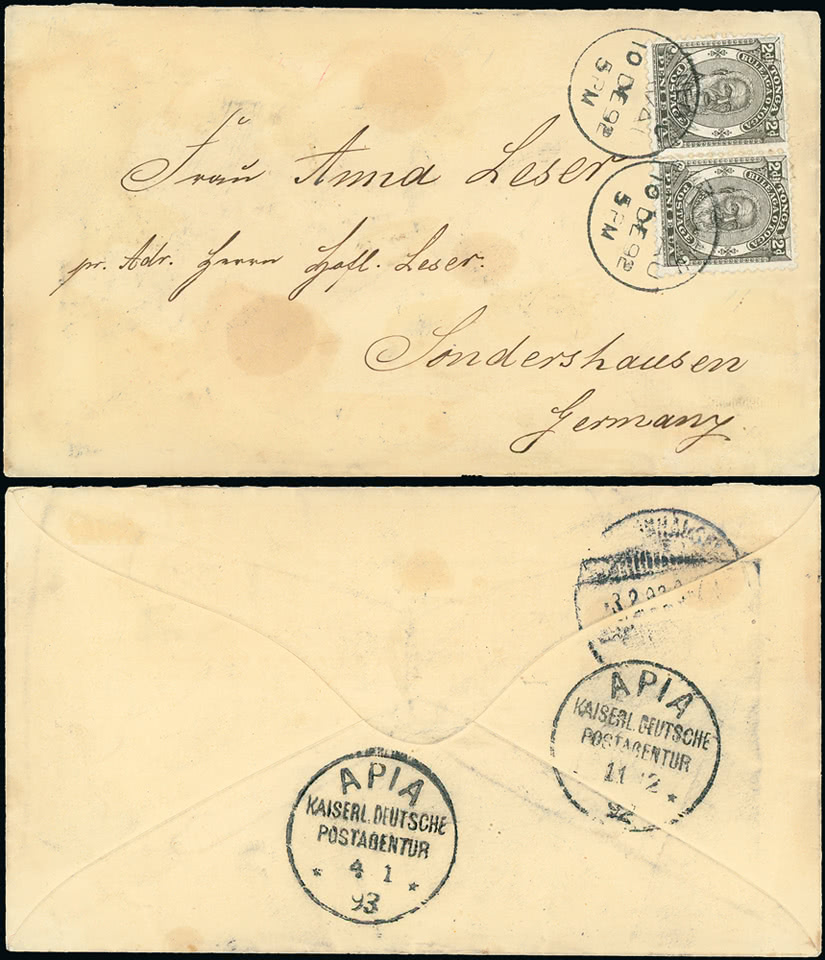 10 DE 92
5 PM
2d TONGA 2d
BULEAGA O TOGA
10 DE 92
5 PM
2d TONGA 2d
BULEAGA O TOGA
Frau Anna Leser
pr. Adr. Herrn Hofl. Leser.
Sondershausen
Germany.
APIA
KAISERL. DEUTSCHE
POSTAGENTUR
11 12
92
APIA
KAISERL. DEUTSCHE
POSTAGENTUR
* 4 1 *
93